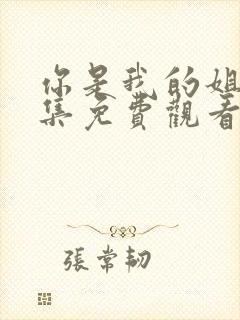 你是我的姐
集免費觀看
張常韌